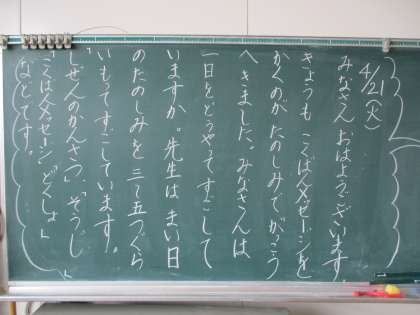 4/21(火)
みなさん おはようございます。
きょうも こくばんメッセージを
かくのが たのしみで、がっこう
へ きました。みなさんは
一日をどうやって すごして
いますか。先生は まい日
のたのしみを 三こ〜五こくら
いもって すごしています。
「しぜんのかんさつ」「そうじ」
「こくばんメッセージ」「どくしょ」
などです。